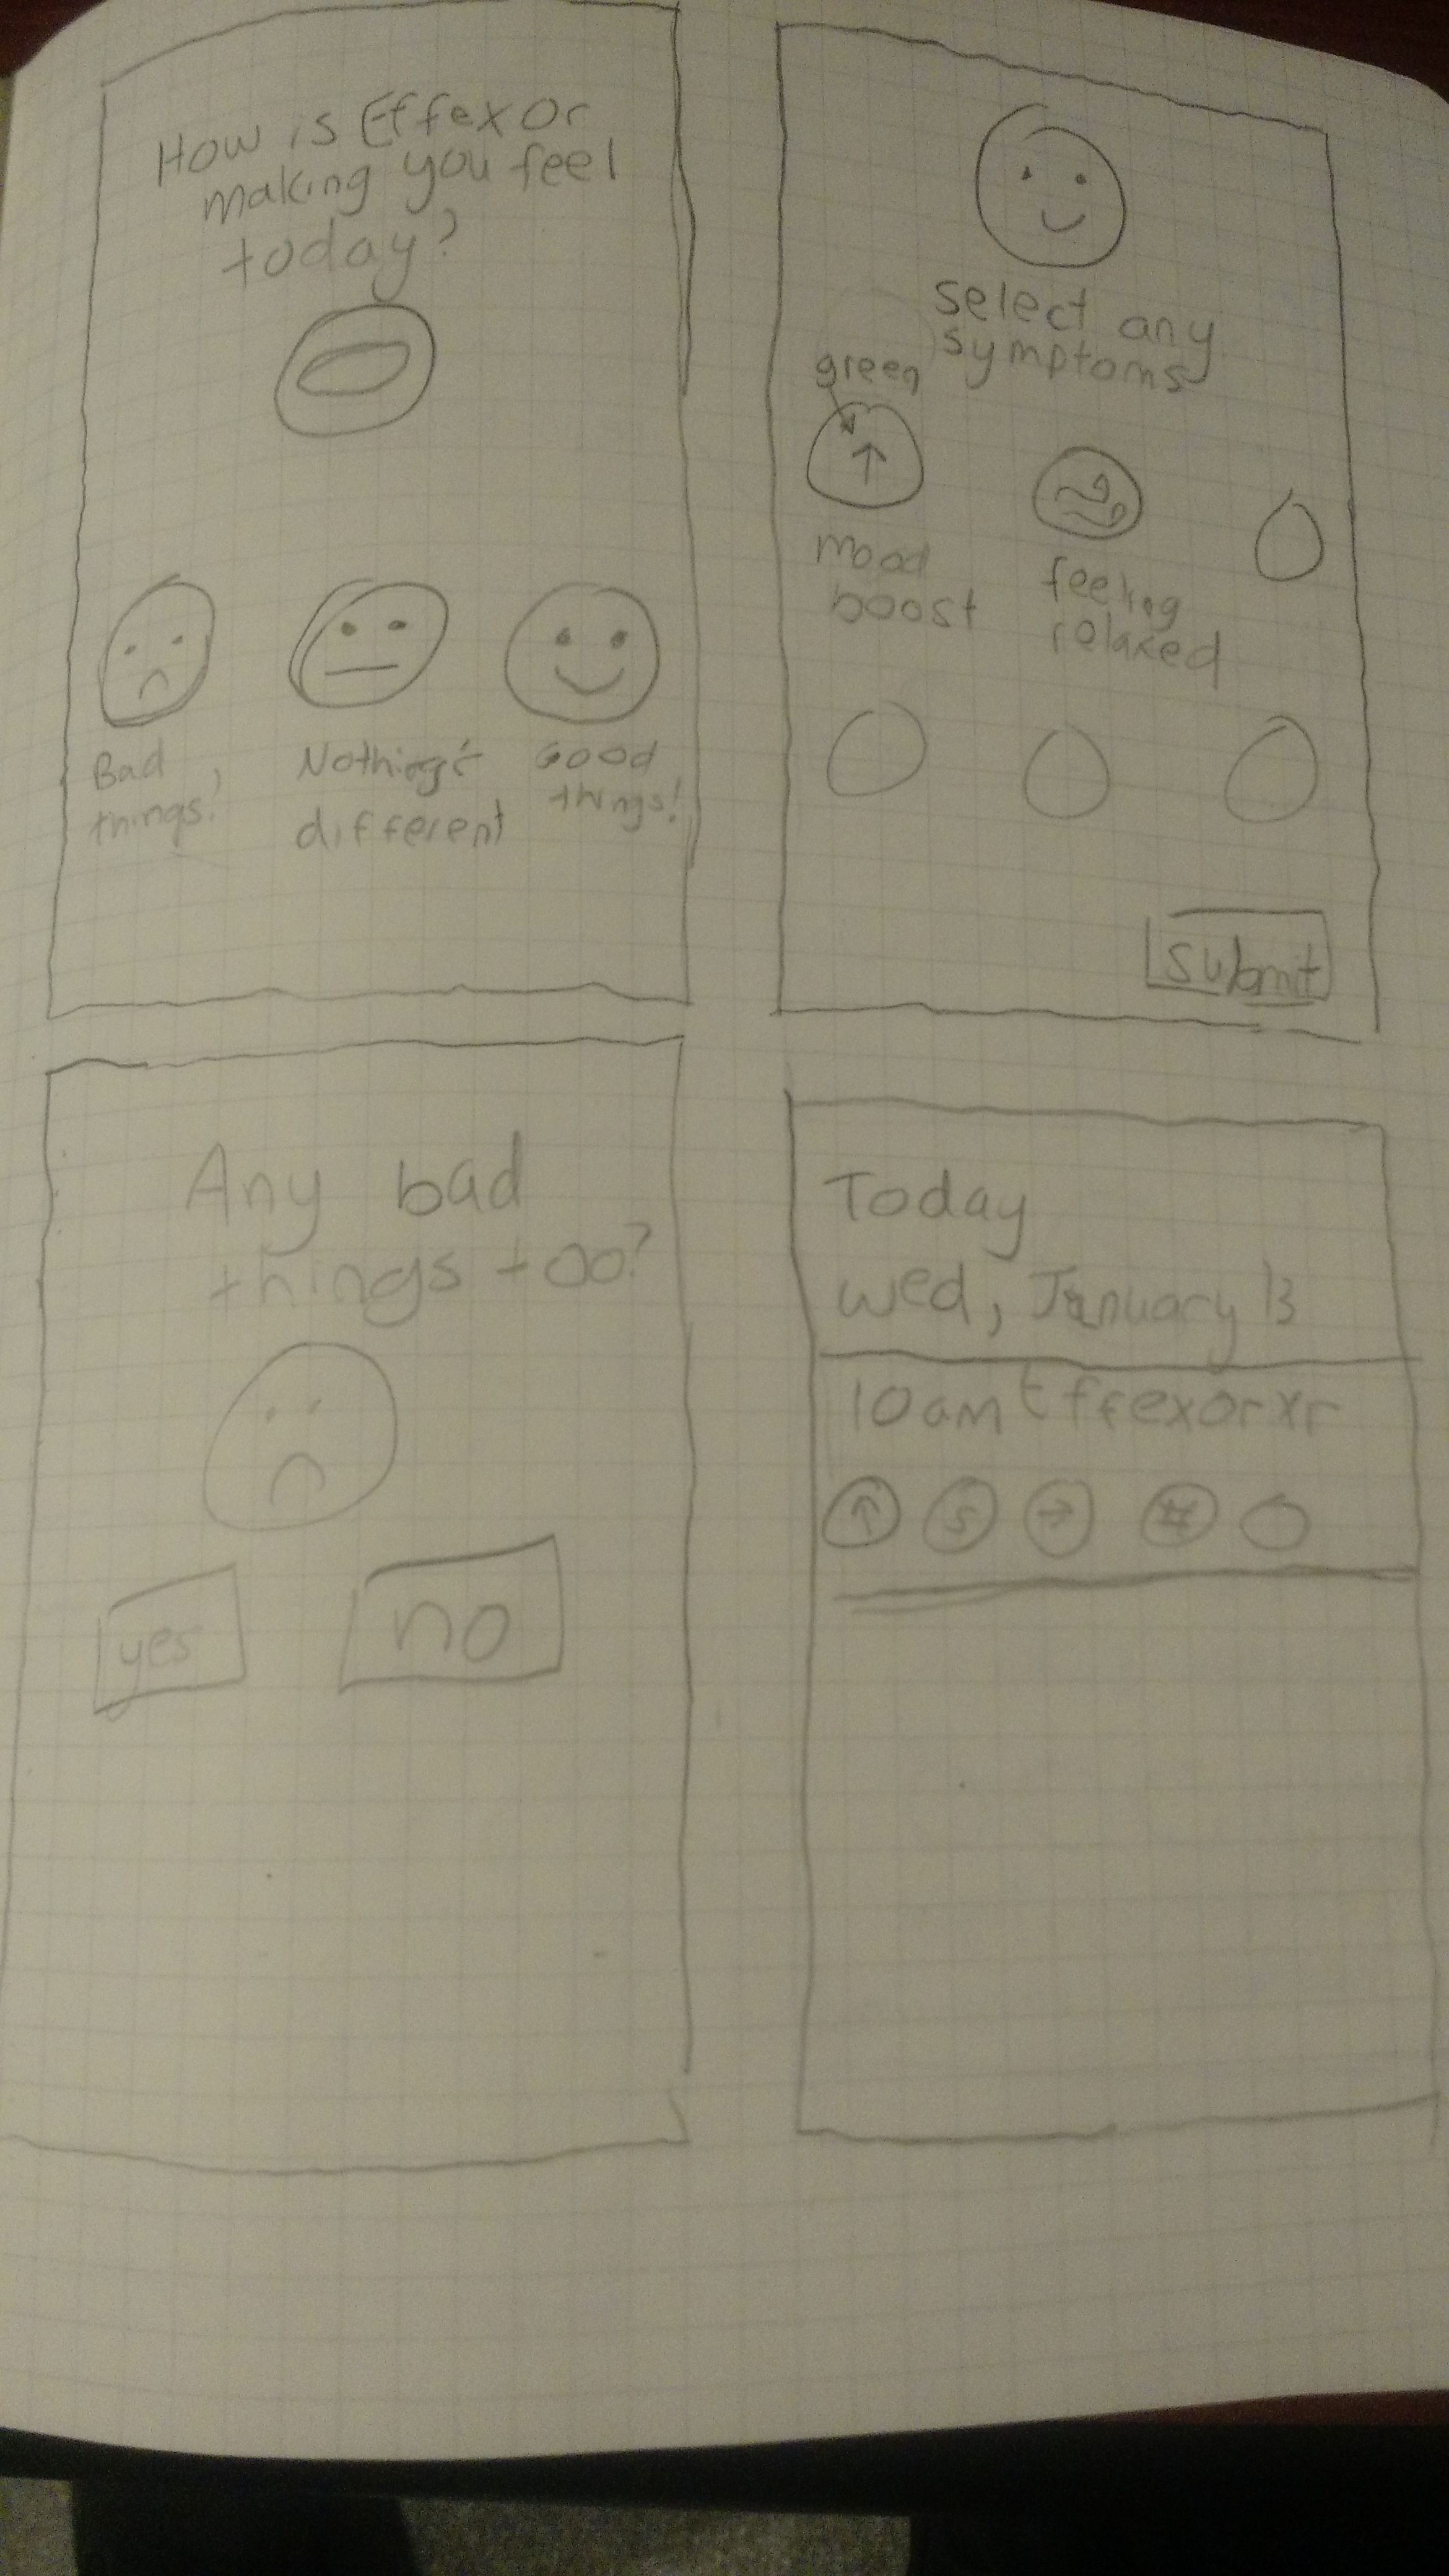 How is Effexor
making you feel
today?
Bad
things!
Nothing's
different
Good
things!
select any
symptoms
green
mood
boost
feeling
relaxed
submit
Any bad
things too?
yes
no
Today
wed, January 13
10am Effexor xr
S
#